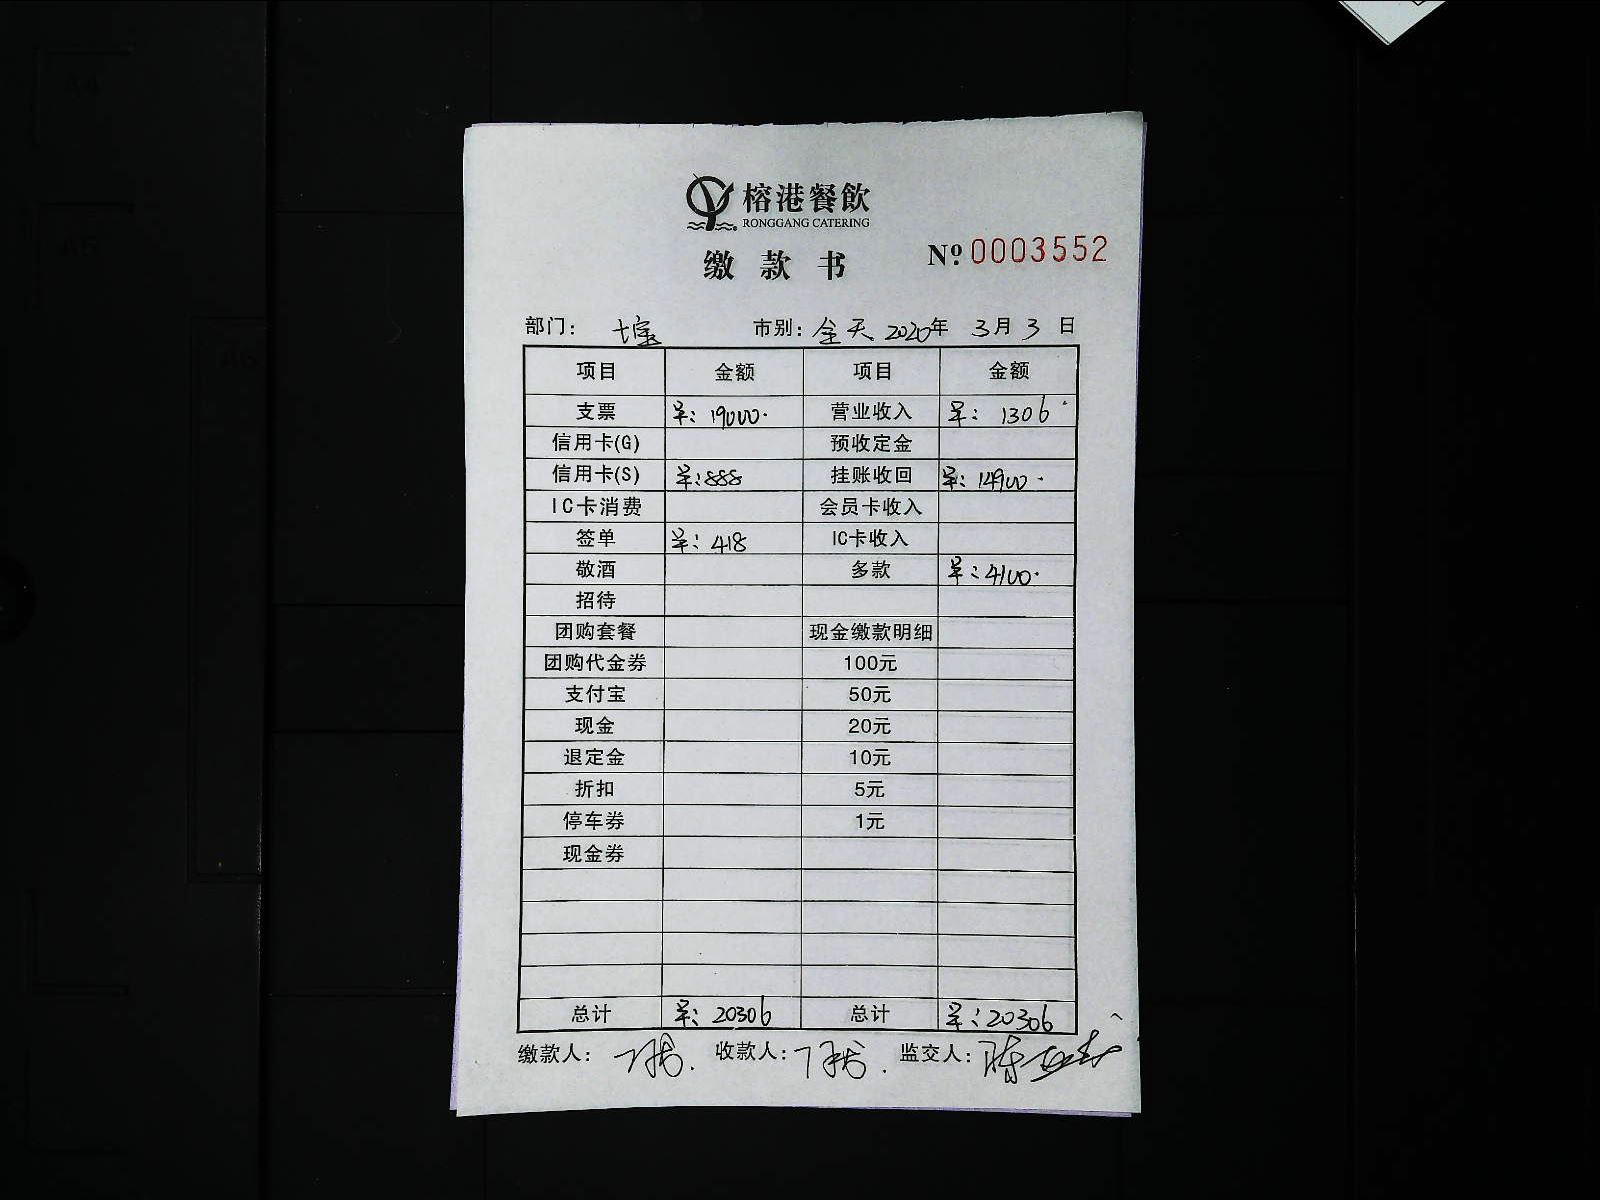 榕港餐飲
RONGGANG CATERING
缴款书 Nº 0003552
部门: 七宝 市别: 全天 2020年 3月 3日
项目 金额 项目 金额
支票 单: 19000. 营业收入 单: 1306.
信用卡(G) 预收定金
信用卡(S) 单: 888 挂账收回 单: 14900.
IC卡消费 会员卡收入
签单 单: 418 IC卡收入
敬酒 多款 单: 4100.
招待
团购套餐 现金缴款明细
团购代金券 100元
支付宝 50元
现金 20元
退定金 10元
折扣 5元
停车券 1元
现金券
总计 单: 20306 总计 单: 20306
缴款人: 收款人: 监交人: 陈